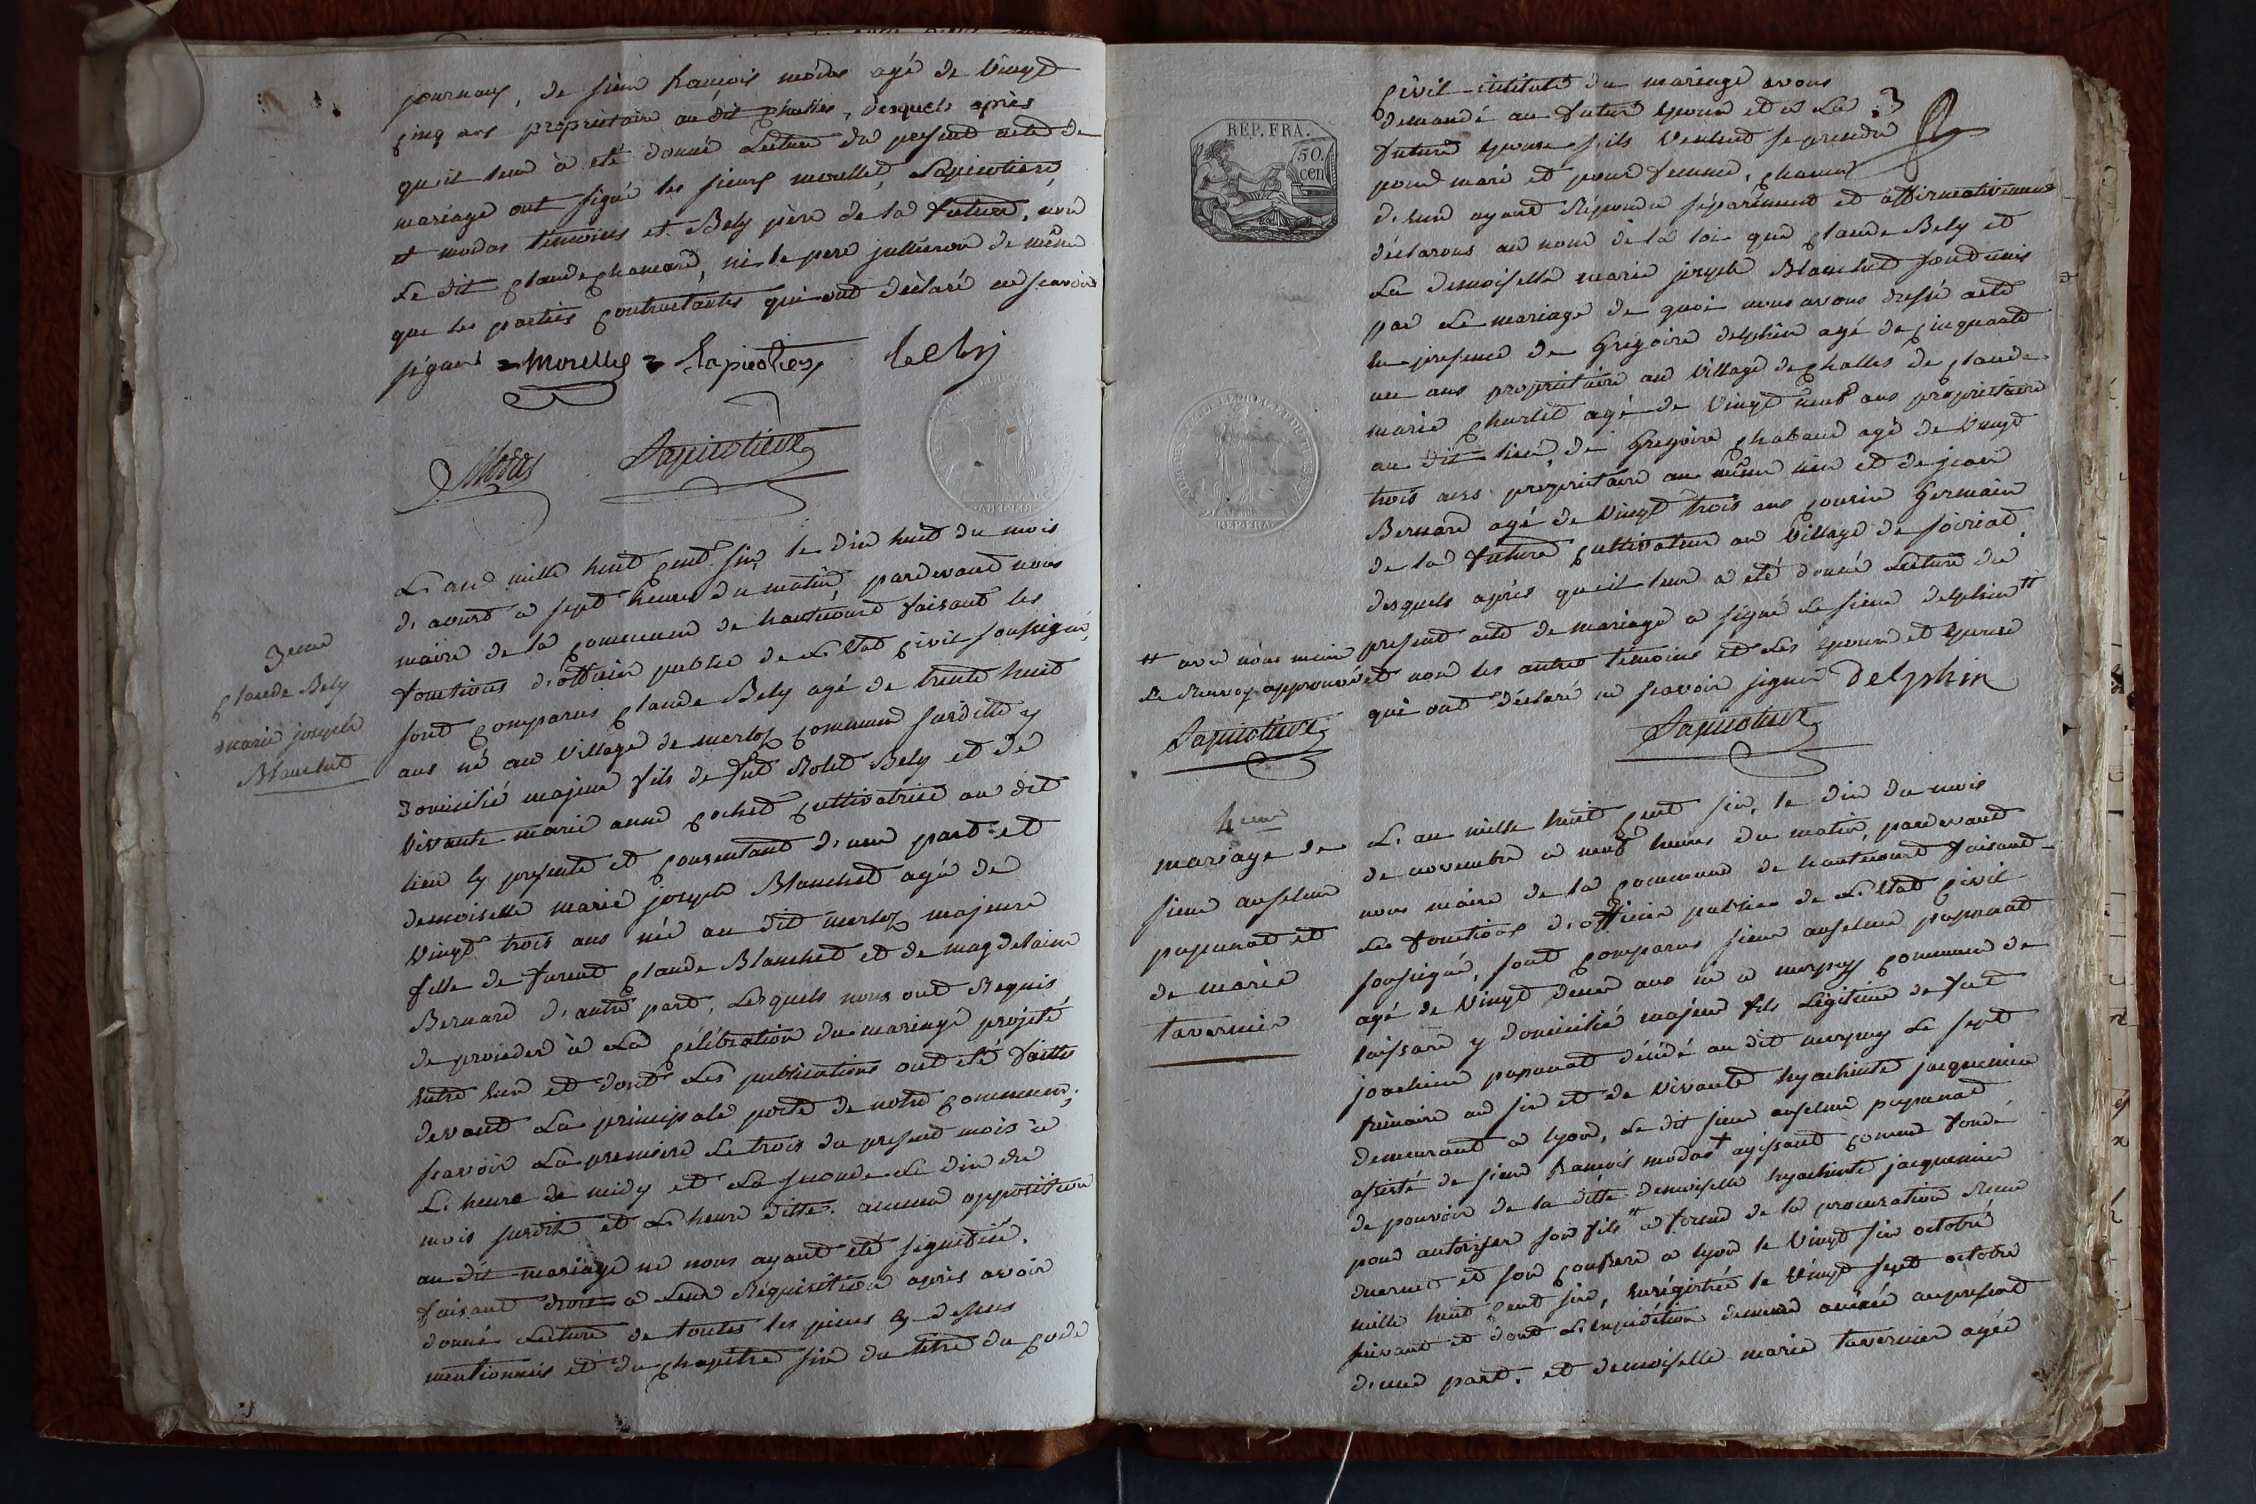 journaux, de sieur françois modas agé de vingt
cinq ans propriétaire au dit challes, desquels après
qu'il leur à eté donné Lecture du present acte de
mariage ont signé les sieurs morellet, Lapicotiere,
et modas temoins et Bely père de la future, non
Le dit claude chanard, ni le pere jullieron de même
que les parties contractantes qui ont déclaré ne scavoir
signer Morellet Lapicotiere bely
Modas Lapicotiere
3eme
claude Bely
marie joseph
Blanchet
L'an mille huit cent six le dix huit du mois
d'aoust a sept heures du matin, pardevant nous
maire de la commune de hautecourt faisant les
fonctions d'officier public de L'Etat civil soussigné,
sont comparus claude Bely agé de trente huit
ans né au village de merloz commune susditte y
domicilié majeur fils de fut Rolet Bely et de
vivante marie anne cochet cultivatrice au dit
lieu cy presente et consentant d'une part et
demoiselle marie joseph Blanchet agé de
vingt trois ans née au dit merloz majeure
fille de furent claude Blanchet et de magdelaine
Bernard d'autre part, Lesquels nous ont Requis
de proceder à La célébration du mariage projeté
entre eux et dont Les publications ont eté faittes
devant La principale porte de notre commune,
scavoir La premiere Le trois du present mois à
L'heure de midy et La seconde Le dix du
mois susdit et L'heure ditte. aucune opposition
au dit mariage ne nous ayant eté signifiée.
faisant droit a Leur Réquisition après avoir
donné Lecture de toutes les pieces cy dessus
mentionnés et du chapitre six du titre du code
REP. FRA.
50.
cen
3
civil intitulé du mariage avons
demandé au futur epoux et à La
future epouse s'ils veulent se prendre
pour mari et pour femme, chacun
d'eux ayant Répondu séparément et affirmativement
déclarons au nom de la loi que claude Bely et
La demoiselle marie joseph Blanchet sont unis
par Le mariage de quoi nous avons dressé acte
en presence de Grégoire delphin agé de cinquante
un ans propriétaire au village de challes de claude
marie charlet agé de vingt neuf ans propriétaire
au dit lieu, de Gregoire chaland agé de vingt
trois ans propriétaire au même lieu et de jean
Bernard agé de vingt trois ans cousin Germain
de la future cultivateur au village de soiriat
desquels après qu'il leur a eté donné Lecture du
present acte de mariage a signé Le sieur delphin #
# avec nous maire
Le Renvoy approuvé
et non les autres témoins et Les epoux et epouse
qui ont déclaré ne scavoir signer Delphin
Lapicotiere
Lapicotiere
4eme
mariage de
sieur anselme
papanat et
de marie
tavernier
L'an mille huit cent six, le dix du mois
de novembre a neuf heures du matin, pardevant
nous maire de la commune de hautecourt faisant
Les fonctions d'officier public de L'Etat civil
soussigné, sont comparus sieur anselme papanat
agé de vingt deux ans né a commune de
laissard y domicilié majeur fils Légitime de fut
joachim papanat décédé au dit Le sept
frimaire an six et de vivante hyachinte jacquemin
demeurant a lyon, Le dit sieur anselme papanat
assisté de sieur françois modas + agissant comme fondé
de pouvoir de la ditte demoiselle hyachinte jacquemin
pour autoriser son fils # a forme de la procuration Reçue
et son confrere a lyon le vingt six octobre
mille huit cent six, enrégistrée le vingt sept octobre
suivant et dont L'expédition demeure annexée au present
d'une part. et demoiselle marie tavernier agée